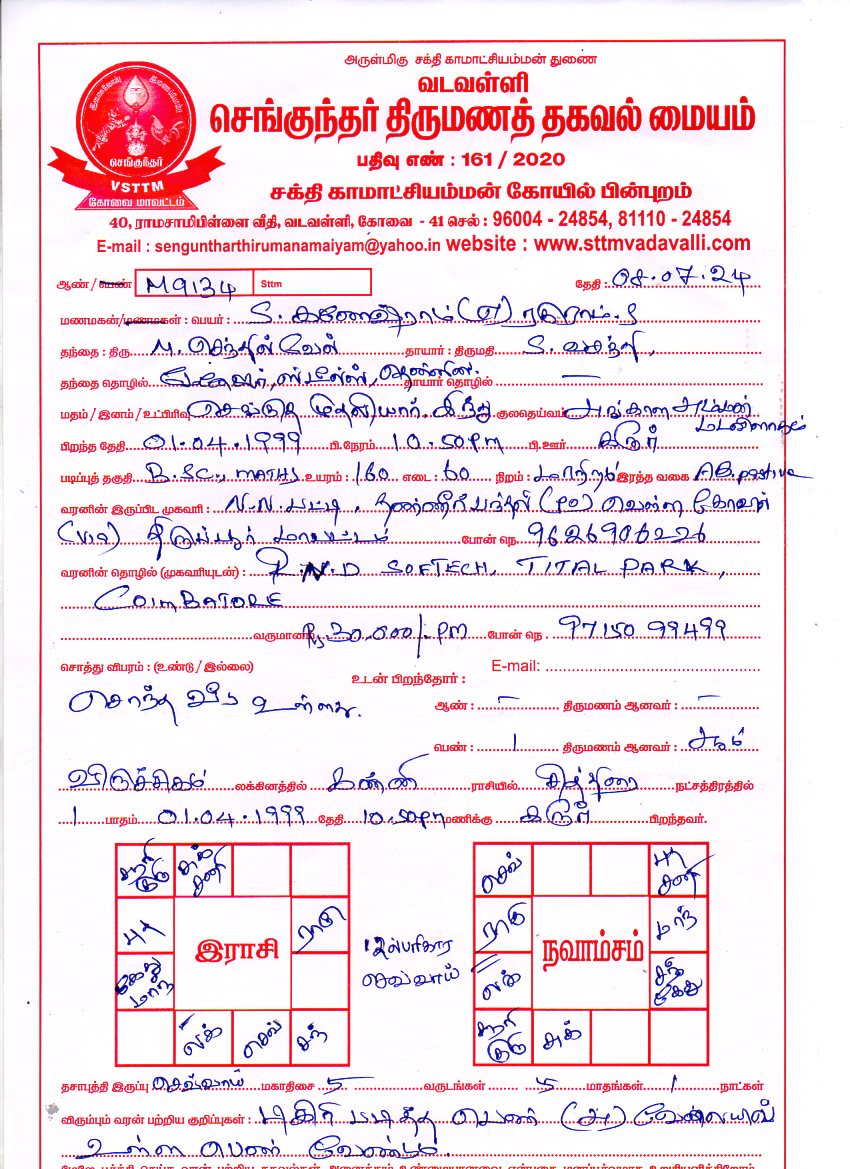 அருள்மிகு சக்தி காமாட்சியம்மன் துணை
வடவள்ளி
செங்குந்தர் திருமணத் தகவல் மையம்
பதிவு எண் : 161 / 2020
செங்குந்தர்
VSTTM
கோவை மாவட்டம்
சக்தி காமாட்சியம்மன் கோயில் பின்புறம்
40, ராமசாமிபிள்ளை வீதி, வடவள்ளி, கோவை - 41 செல் : 96004 - 24854, 81110 - 24854
E-mail : senguntharthirumanamaiyam@yahoo.in website : www.sttmvadavalli.com
ஆண் / பெண் M9134 Sttm தேதி : 08.07.24
மணமகன்/மணமகள் : பெயர் : S. கணேஷ்ராம் (எ) ரகுராம். S
தந்தை : திரு M. செந்தில்வேல் தாயார் : திருமதி S.
தந்தை தொழில் தாயார் தொழில் —
மதம் / இனம் / உட்பிரிவு செங்குந்த முதலியார். இந்து குலதெய்வம் அங்காள அம்மன்
பிறந்த தேதி 01.04.1999 பி.நேரம் 10.50pm பி.ஊர் கரூர்
படிப்புத் தகுதி B.SC., MATHS உயரம் : 160 எடை : 60 நிறம் : மாநிறம் இரத்த வகை AB.positive
வரனின் இருப்பிட முகவரி : N.N. பட்டி, தண்ணீர்பந்தல் (PO) வெள்ளகோவில்
(via) திருப்பூர் மாவட்டம் போன் நெ. 9626906226
வரனின் தொழில் (முகவரியுடன்) : R.N.D SOFTECH, TITAL PARK,
COIMBATORE
வருமானம் Rs 30.000/-PM போன் நெ. 97150 99499
சொத்து விபரம் : (உண்டு / இல்லை) E-mail:
உடன் பிறந்தோர் :
சொந்த வீடு உள்ளது. ஆண் : – திருமணம் ஆனவர் : –
பெண் : 1 திருமணம் ஆனவர் : ஆம்
விருச்சிகம் லக்கினத்தில் கன்னி ராசியில் சித்திரை நட்சத்திரத்தில்
1 பாதம் 01.04.1999 தேதி 10.50pm மணிக்கு கரூர் பிறந்தவர்.
சூரி குரு
சுக் சனி
பு
ராகு
கேது மாந்
லக்
செவ்
சந்
இராசி
12ல் பரிகார
செவ்வாய்
செவ்
பு சனி
ராகு
மாந்
லக்
சந் கேது
சூரி குரு
சுக்
நவாம்சம்
தசாபுத்தி இருப்பு செவ்வாய் மகாதிசை 5 வருடங்கள் 5 மாதங்கள் 1 நாட்கள்
விரும்பும் வரன் பற்றிய குறிப்புகள் : டிகிரி படித்த பெண் (அ) வேலையில்
உள்ள பெண் வேண்டும்.